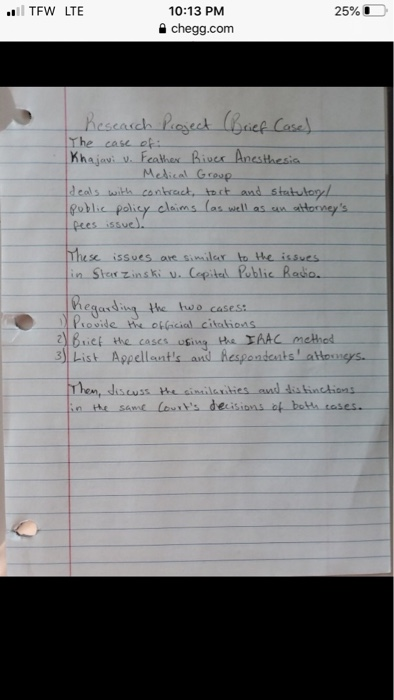 TFW LTE 10:13 PM 25%
chegg.com
Research Project (Brief Case)
The case of:
Khajavi v. Feather River Anesthesia
Medical Group
deals with contract, tort and statutory/
public policy claims (as well as an attorney's
fees issue).
These issues are similar to the issues
in Starzinski v. Capital Public Radio.
Regarding the two cases:
1) Provide the official citations
2) Brief the cases using the IRAC method
3) List Appellant's and Respondents' attorneys.
Then, discuss the similarities and distinctions
in the same Court's decisions of both cases.